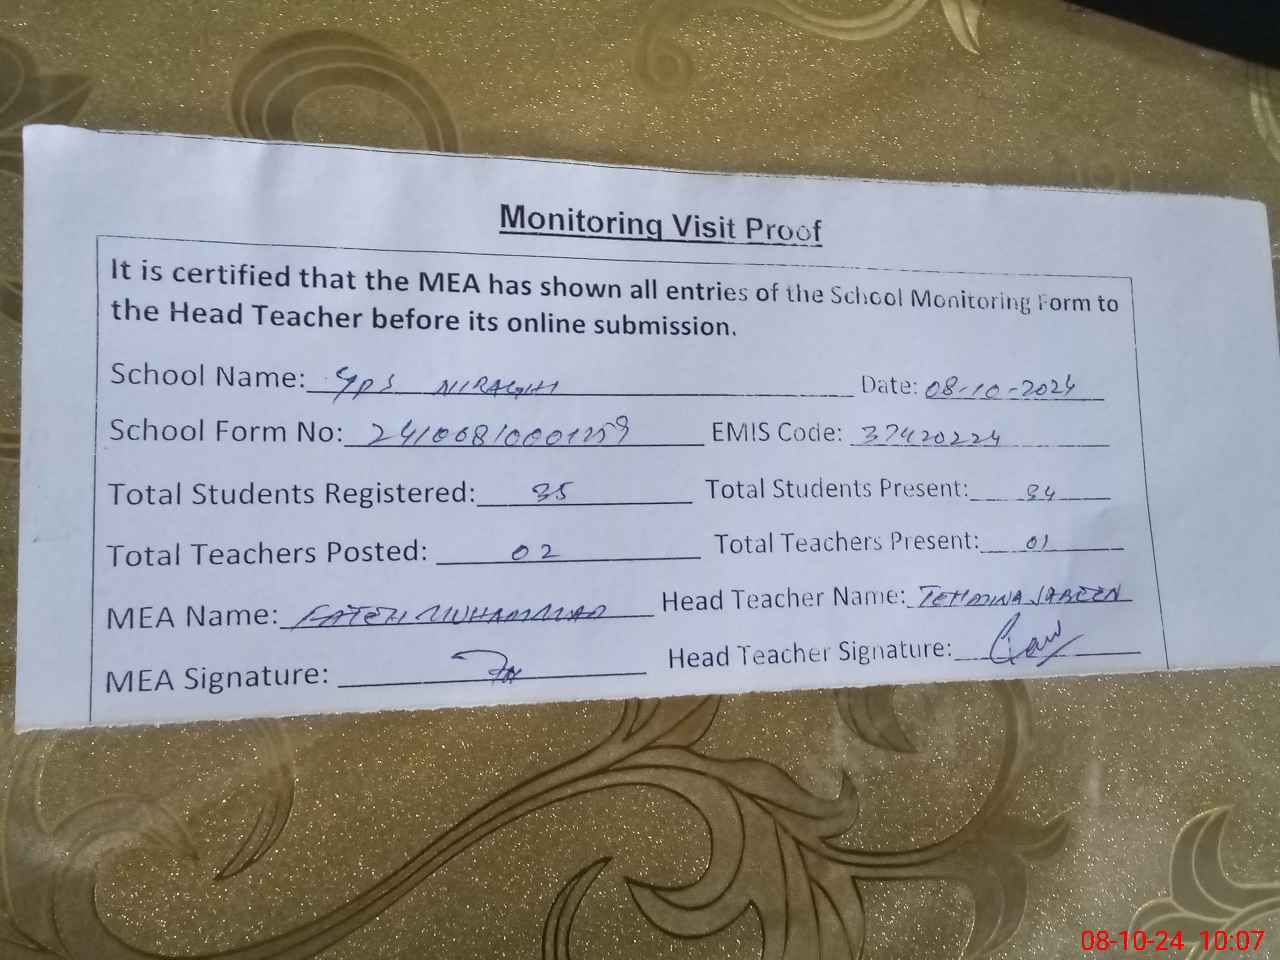 Monitoring Visit Proof
It is certified that the MEA has shown all entries of the School Monitoring Form to
the Head Teacher before its online submission.
School Name: GPS Date: 08-10-2024
School Form No: 24100810001259 EMIS Code: 37420224
Total Students Registered: 35 Total Students Present: 34
Total Teachers Posted: 02 Total Teachers Present: 01
MEA Name: FATEH MUHAMMAD Head Teacher Name: TEHMINA JABEEN
MEA Signature: Head Teacher Signature:
08-10-24 10:07